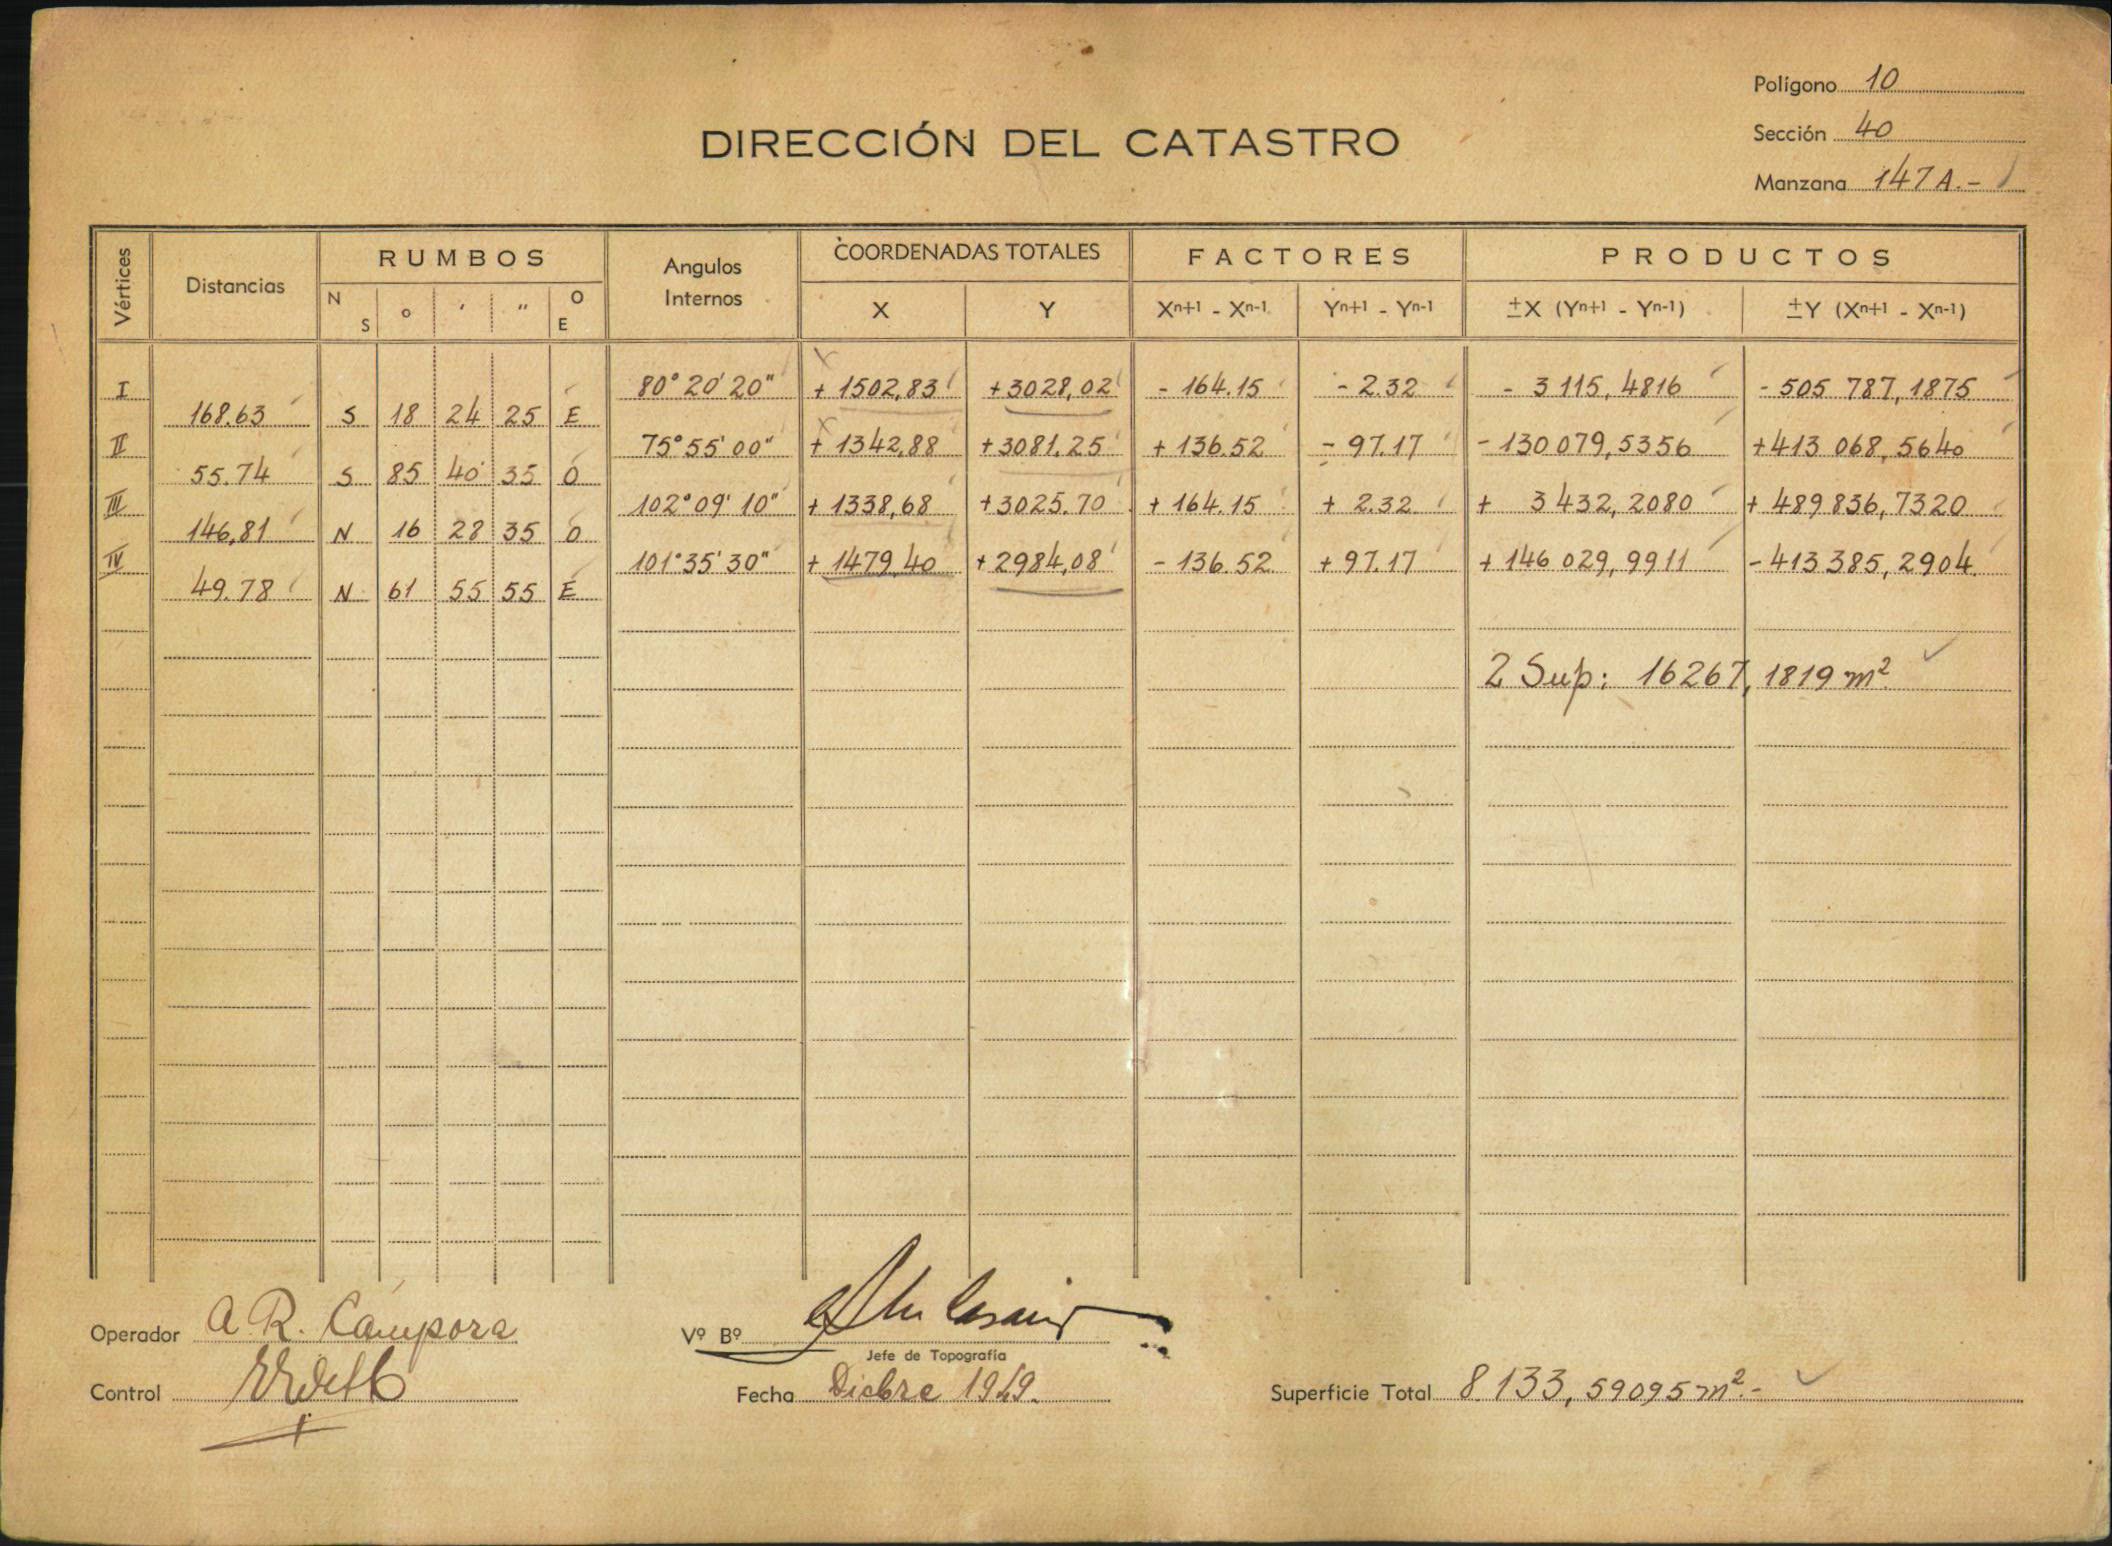 Polígono 10
Sección 40
Manzana 147 A.-
DIRECCIÓN DEL CATASTRO
Vértices Distancias RUMBOS Angulos Internos COORDENADAS TOTALES FACTORES PRODUCTOS
N S ° ' " O E X Y Xⁿ⁺¹ - Xⁿ⁻¹ Yⁿ⁺¹ - Yⁿ⁻¹ ±X (Yⁿ⁺¹ - Yⁿ⁻¹) ±Y (Xⁿ⁺¹ - Xⁿ⁻¹)
I 80° 20' 20" + 1502,83 +3028,02 - 164.15 - 2.32 - 3 115, 4816 - 505 787,1875
168.63 S 18 24 25 E
II 75° 55' 00" + 1342,88 +3081,25 + 136.52 - 97.17 - 130 079,5356 +413 068,5640
55.74 S 85 40 35 O
III 102° 09' 10" + 1338,68 +3025.70 + 164.15 + 2.32 + 3 432, 2080 + 489 836,7320
146,81 N 16 28 35 O
IV 101° 35' 30" + 1479,40 +2984,08 - 136.52 + 97.17 + 146 029,9911 - 413 385,2904
49.78 N 61 55 55 E
2 Sup: 16267,1819 m²
Operador A R. Cámpora
Vº Bº
Jefe de Topografía
Control
Fecha Dicbre 1949.
Superficie Total 8.133,59095 m².-